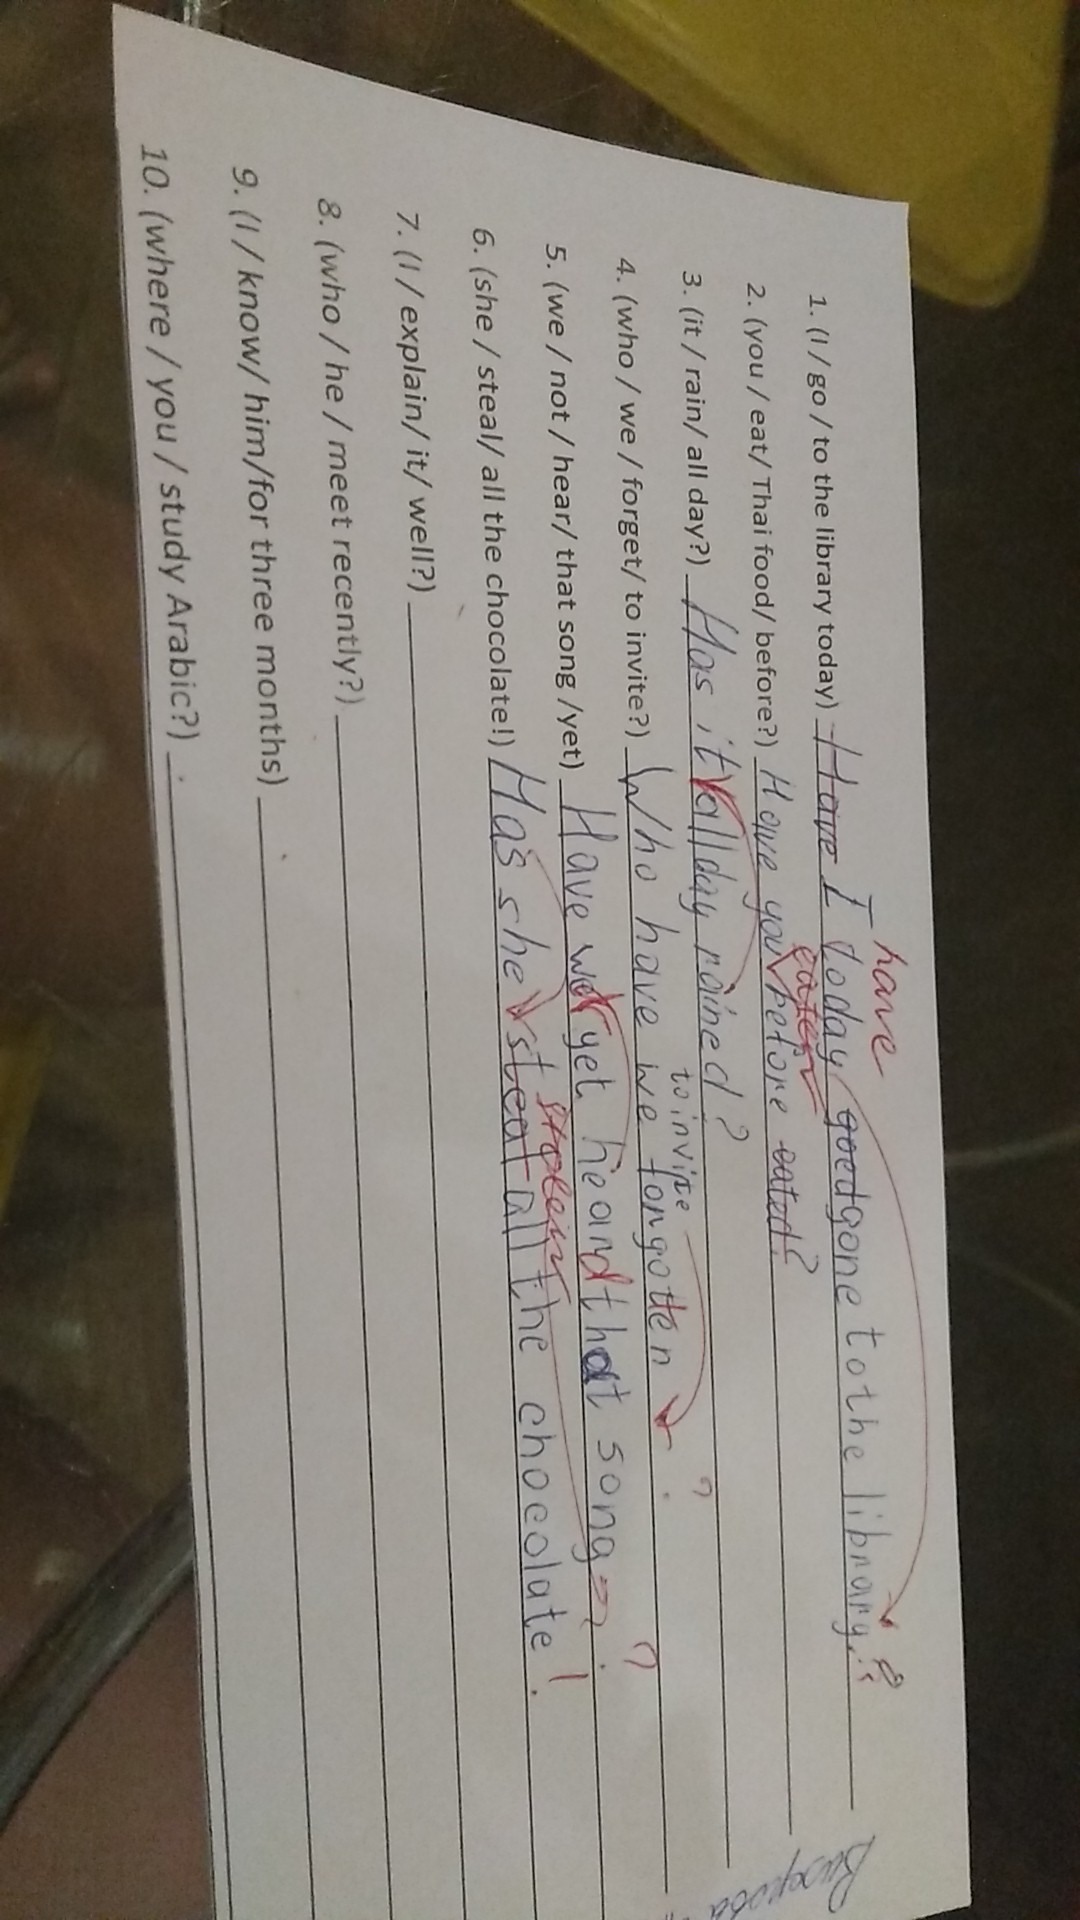 have
1. (I / go / to the library today) Have I today goed gone to the library.
eaten
2. (you / eat/ Thai food/ before?) Have you before eated?
3. (it / rain/ all day?) Has it all day rained?
to invite ?
4. (who / we / forget/ to invite?) Who have we forgotten .
5. (we / not / hear/ that song /yet) Have we yet heard that song . ?
stolen
6. (she / steal/ all the chocolate!) Has she steal all the chocolate! .
7. (I / explain/ it/ well?)
8. (who / he / meet recently?)
9. (I / know/ him/for three months)
10. (where / you / study Arabic?)